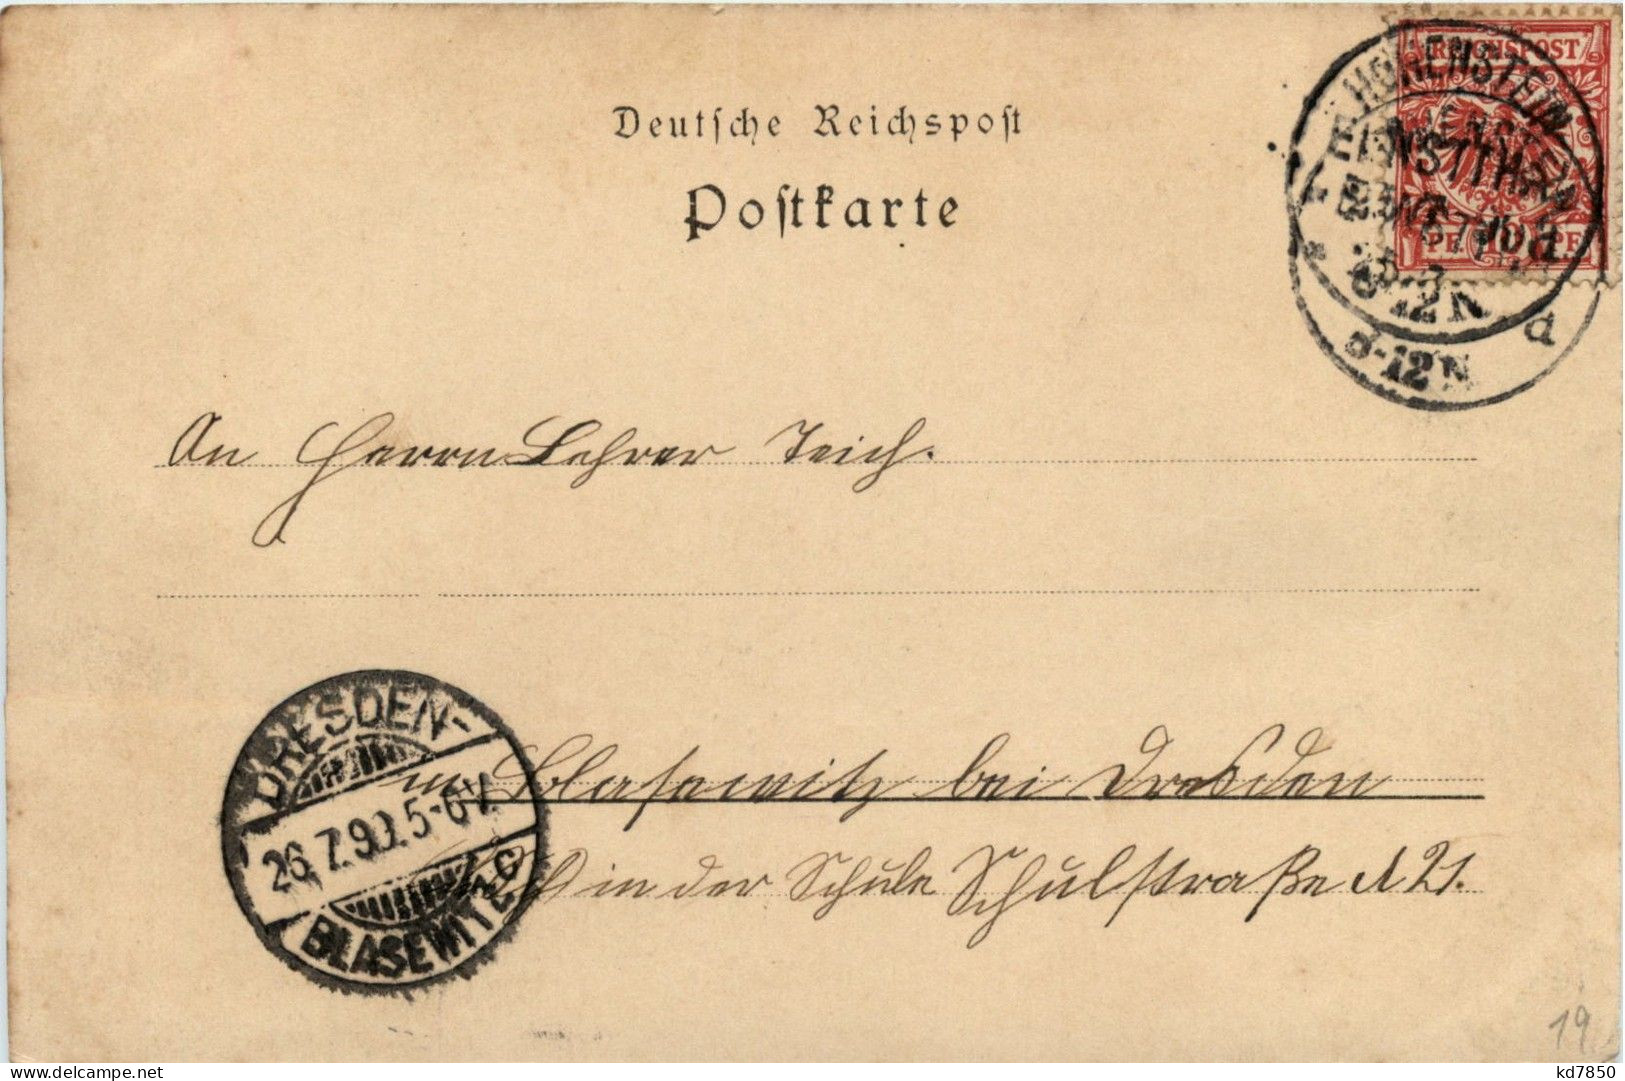 REICHSPOST
HOHENSTEIN
8-12N
8-12N
Deutsche Reichspost
Postkarte
An Herrn Lehrer Teich.
in Blasewitz bei Dresden
in der Schule Schulstraße
DRESDEN-
26.7.99.5-6V.
BLASEWITZ
19
kd7850